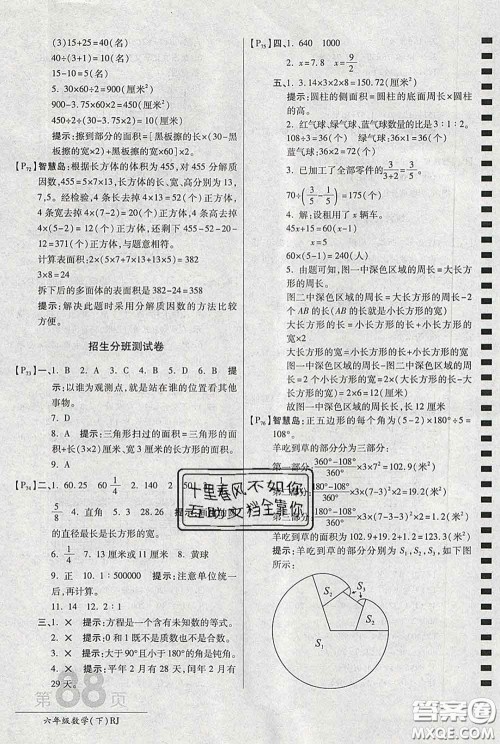 (3)15+25=40(名)
40÷(3+1)=10(名)
15-10=5(名)
5. 30×60÷2=900(厘米²)
900-3.75×60=675(厘米²)
900-3.75×60×2=450(厘米²)
提示:擦到部分的面积=[黑板擦的长×(30-黑
板擦的宽×2)+黑板擦的长×30]
【P72】智慧岛:根据长方体的体积为 455 分解质
因数,455=5×7×13,长方体的长、宽、高分别是
4 条长去掉 4×13=52(个)正方体,
4 条宽去掉 4×(7-2)=20(个)正方体,4 条高去
掉 4×(5-2)=12(个)正方体,455-52-20-12
=371(个)正方体,与题意符合。
计算表面积 2×(5×7+5×13+7×13)=382
382-3×8=358
拆下后的多面体的表面积是 382-24=358
提示:解决此题时采用分解质因数的方法比较
方便。
招生分班测试卷
【P73】一、1. B 2. A 3. C 4. D 5. D 6. B 提
示:以谁为观测点,就是站在谁的位置看其他
事物。
7. D
8. A 提示:三角形扫过的面积=三角形的面
积+长方形的面积。
9. A
【P74】二、1. 60.25 60 1/4 2. 200 50
5/8 4. 直角 提示:
的直径最长是长方形的宽。
6. 1/4 7. 8或11或12 8. 黄球
9. 正 10. 1:500000 提示:注意单位统一
后,再计算。
11. 14 12. 2:1
三、1. × 提示:方程是一个含有未知数的等式。
2. × 提示:0 和 1 既不是质数也不是合数。
3. × 提示:大于90°且小于180°的角是钝角。
4. × 提示:平年 2 月有 28 天,闰年 2 月有
29 天。
第88页
六年级数学(下)RJ
【P75】四、1. 640 1000
2. x=7.8 x=9/2
五、1. 3.14×3×2×8=150.72(厘米²)
提示:圆柱的侧面积=圆柱的底面周长×圆柱
的高。
2. 红气球、绿气球、蓝气球数量的比是3:1:3
红气球 108 个 绿气球 36 个 蓝气球
108 个
3. 已加工了全部零件的 3/(3+2)=3/5,
70÷(3/5-1/5)=175(个)
4. 解:设租用了 x 辆车。
45x+15=60(x-1)
x=5
60×(5-1)=240(人)
5. 由题可知,图一中深色区域的周长=大长方
形的周长
图二中深色区域的周长=大长方形的周长-2
个 AB 的长(AB 长=大长方形的长-小长方
形的宽)
大长方形的长=小长方形的长+小长方形的
宽×2
AB=小长方形的长+小长方形的宽×2-小长
方形的宽=小长方形的长+小长方形的宽
大长方形的宽×2=6
故图一中深色区域的周长长 12 厘米
【P76】智慧岛:正五边形的每个角(5-2)×180°÷5
=108°
羊吃到草的部分分为三部分,
第一部分 (360°-108°)/360°×3×7²=102.9(米²)
(360°-108°)/360°×3×(7-3)²×2=19.2(米²)
第三部分 ×3×(7-3-3)²×2=1.2(米²)
羊吃到草的面积 102.9+19.2+1.2=123.3(米²)
提示:羊吃到草的部分分别为 S₁、S₂、S₃
S₁
S₂
S₃
十里春风不如你
百助文档全靠你
答案圈
MXQE.COM